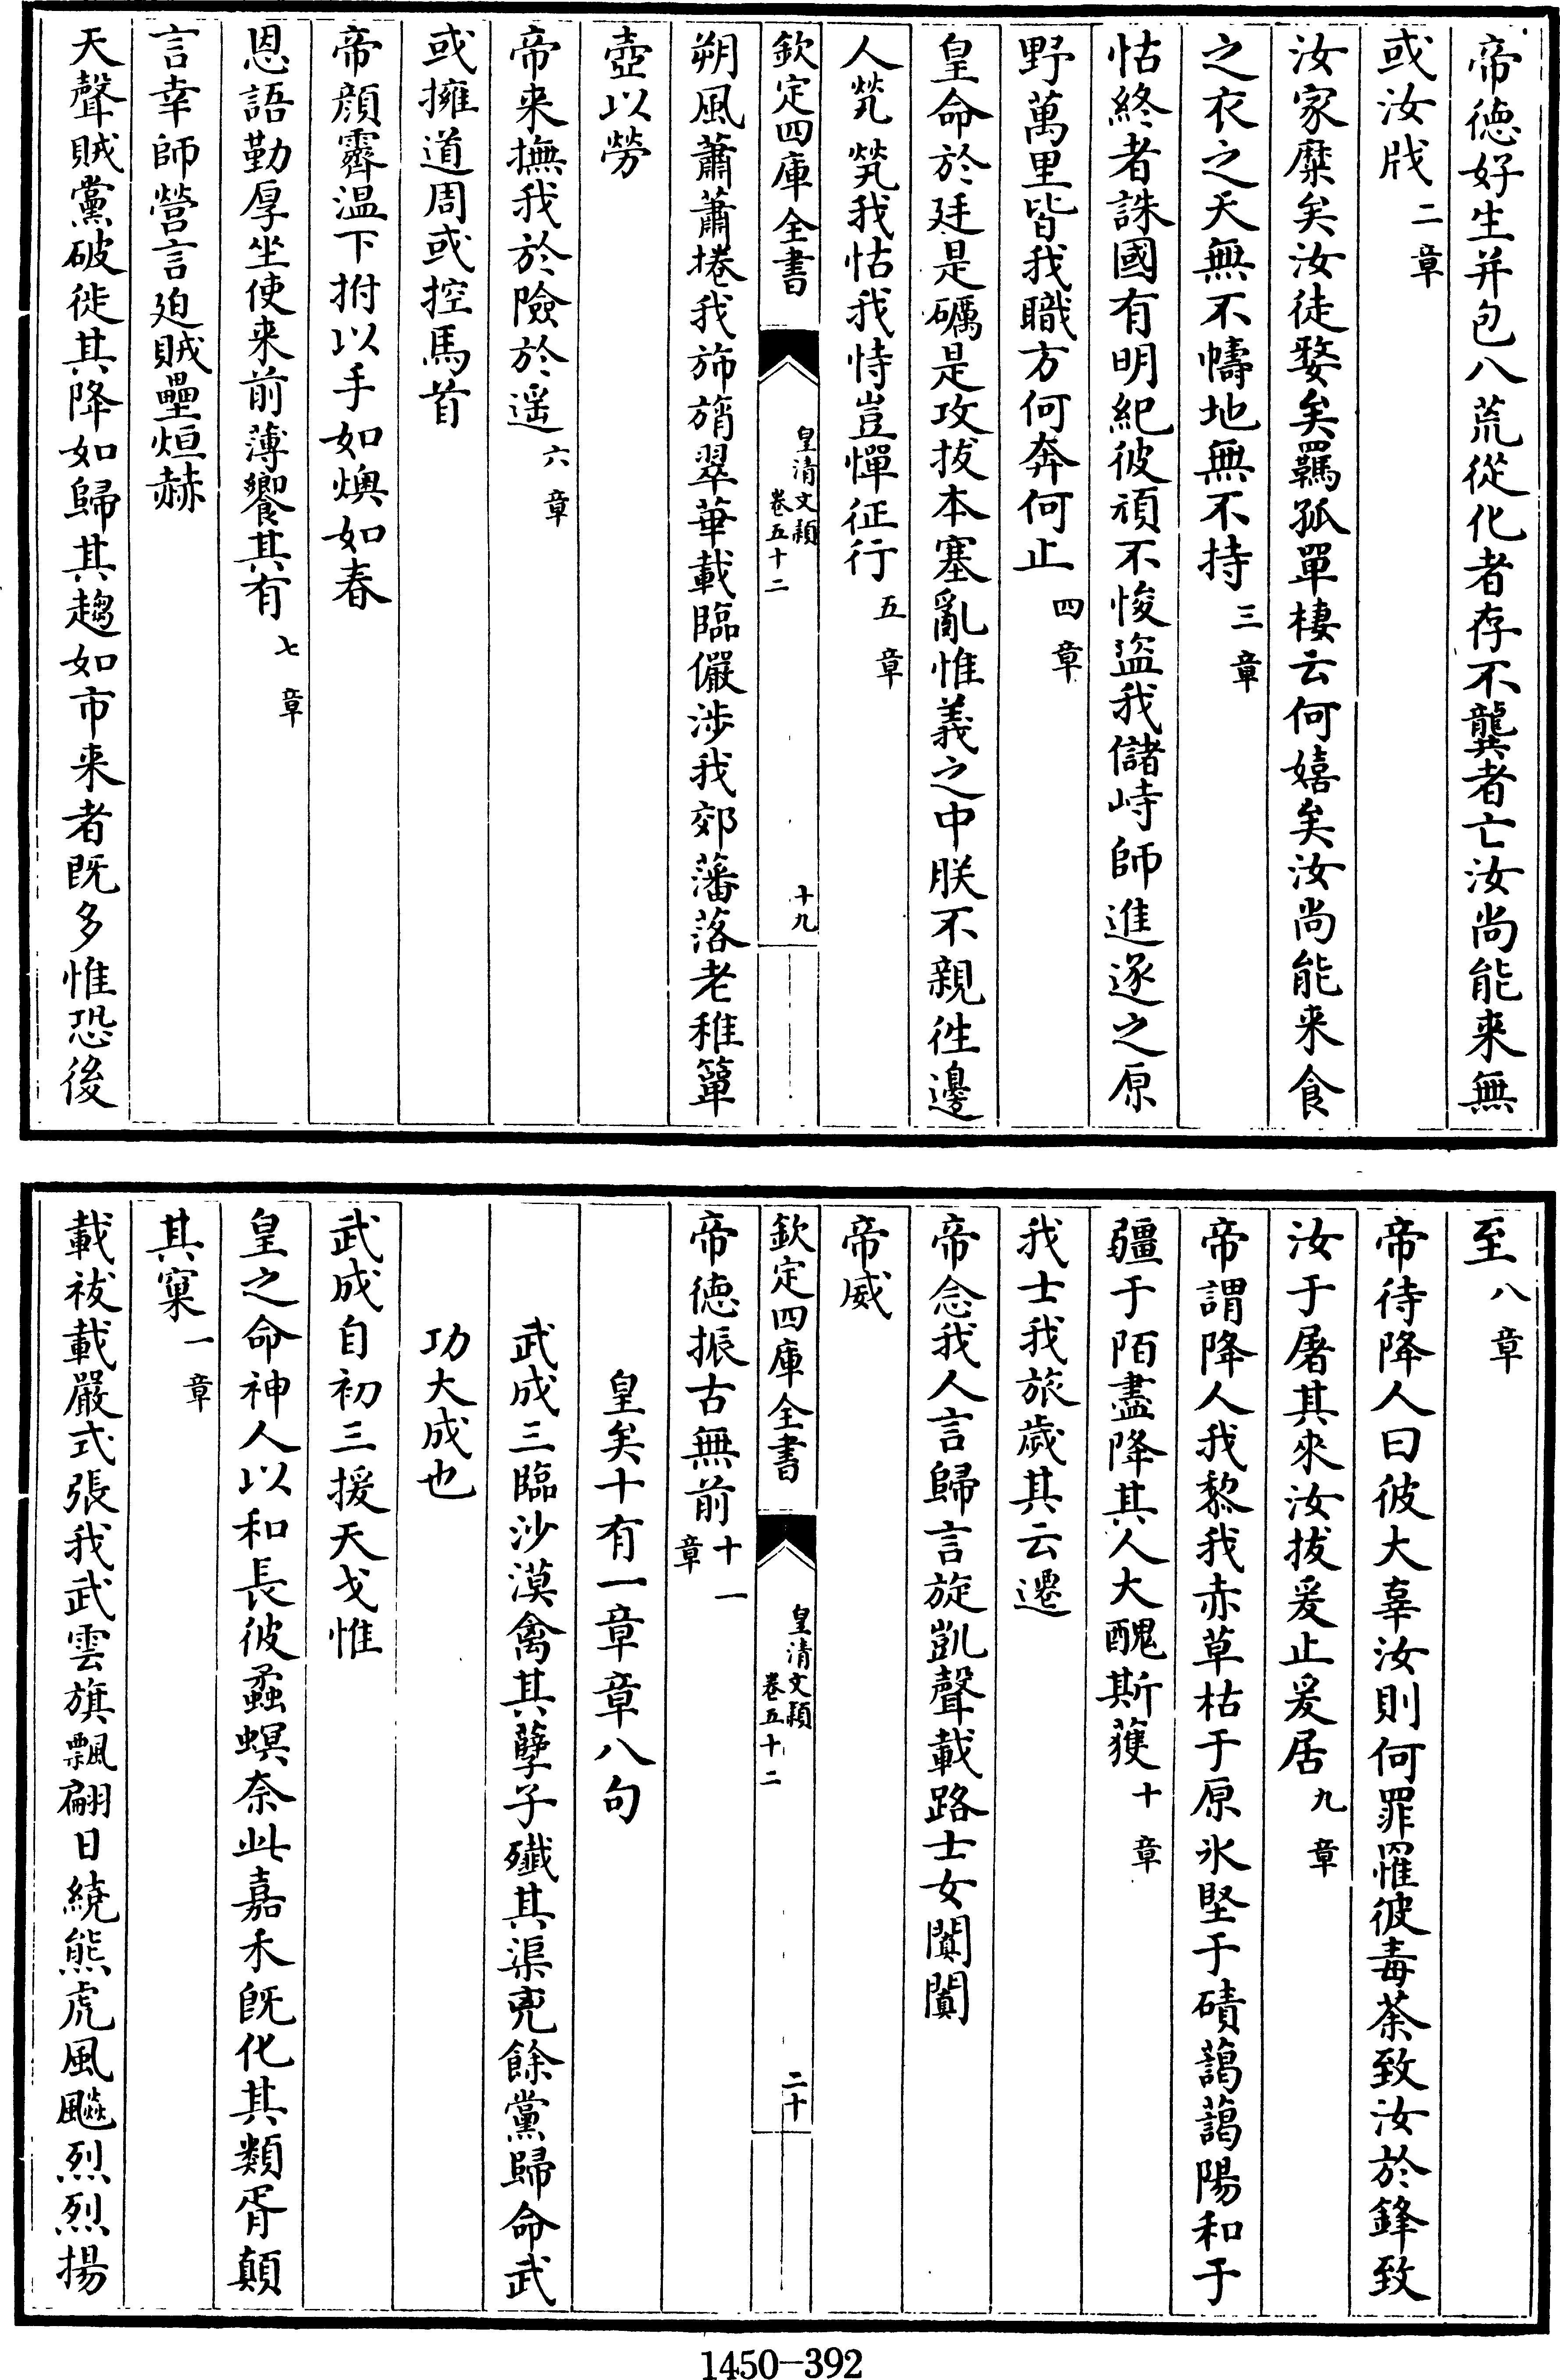 帝徳好生并包八荒從化者存不龔者亡汝尚能来無
或汝戕二章
汝家糜矣汝徒婺矣羈孤單棲云何嬉矣汝尚能来食
之衣之天無不幬地無不持三章
怙終者誅國有明紀彼頑不悛盜我儲峙師進逐之原
野萬里皆我職方何奔何止四章
皇命於廷是礪是攻拔本塞亂惟義之中朕不親徃邊
人煢煢我怙我恃豈憚征行五章
欽定四庫全書
皇清文穎
卷五十二
十九
朔風蕭蕭捲我斾旓翠華載臨儼涉我郊藩落老稚簞
壺以勞
帝来撫我於險於遥六章
或擁道周或控馬首
帝顔霽温下拊以手如燠如春
恩語勤厚坐使来前薄饗其有七章
言幸師營言廹賊壘烜赫
天聲賊黨破徙其降如歸其趨如市来者既多惟恐後
至八章
帝待降人曰彼大辜汝則何罪罹彼毒荼致汝於鋒致
汝于屠其來汝拔爰止爰居九章
帝謂降人我黎我赤草枯于原氷堅于磧藹藹陽和于
疆于陌盡降其人大醜斯獲十章
我士我旅歲其云遷
帝念我人言歸言旋凱聲載路士女闐闐
帝威
欽定四庫全書
皇清文穎
卷五十二
二十
帝徳振古無前十一章
皇矣十有一章章八句
武成三臨沙漠禽其孽子殱其渠兇餘黨歸命武
功大成也
武成自初三援天戈惟
皇之命神人以和長彼蟊螟奈此嘉禾既化其類胥顛
其窠一章
載祓載嚴式張我武雲旗飄翩日繞熊虎風飈烈烈揚
1450-392